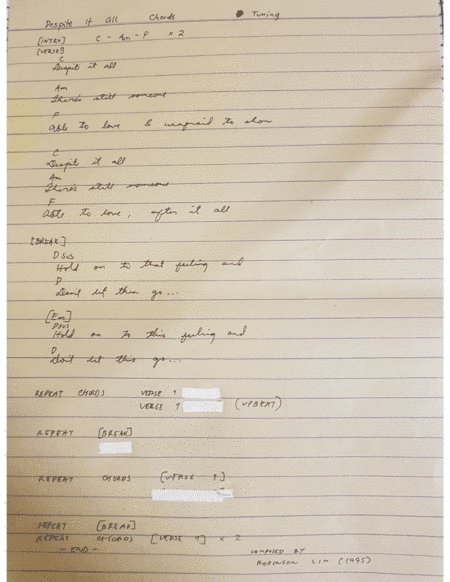 Despite it all Chords Tuning
[INTRO] C - Am - F × 2
[VERSE]
C
Despite it all
Am
There's still someone
F
able to love & unafraid to show
C
Despite it all
Am
There's still someone
F
able to love, after it all
[BREAK]
Dsus
Hold on to that feeling and
D
Don't let them go...
[Em]
Dsus
Hold on to this feeling and
D
Don't let this go...
REPEAT CHORDS VERSE 1
VERSE 1 (UPBEAT)
REPEAT [BREAK]
REPEAT CHORDS [VERSE 1]
REPEAT [BREAK]
REPEAT CHORDS [VERSE 1] × 2
- END - COMPOSED BY
ROBINSON LIM (1995)